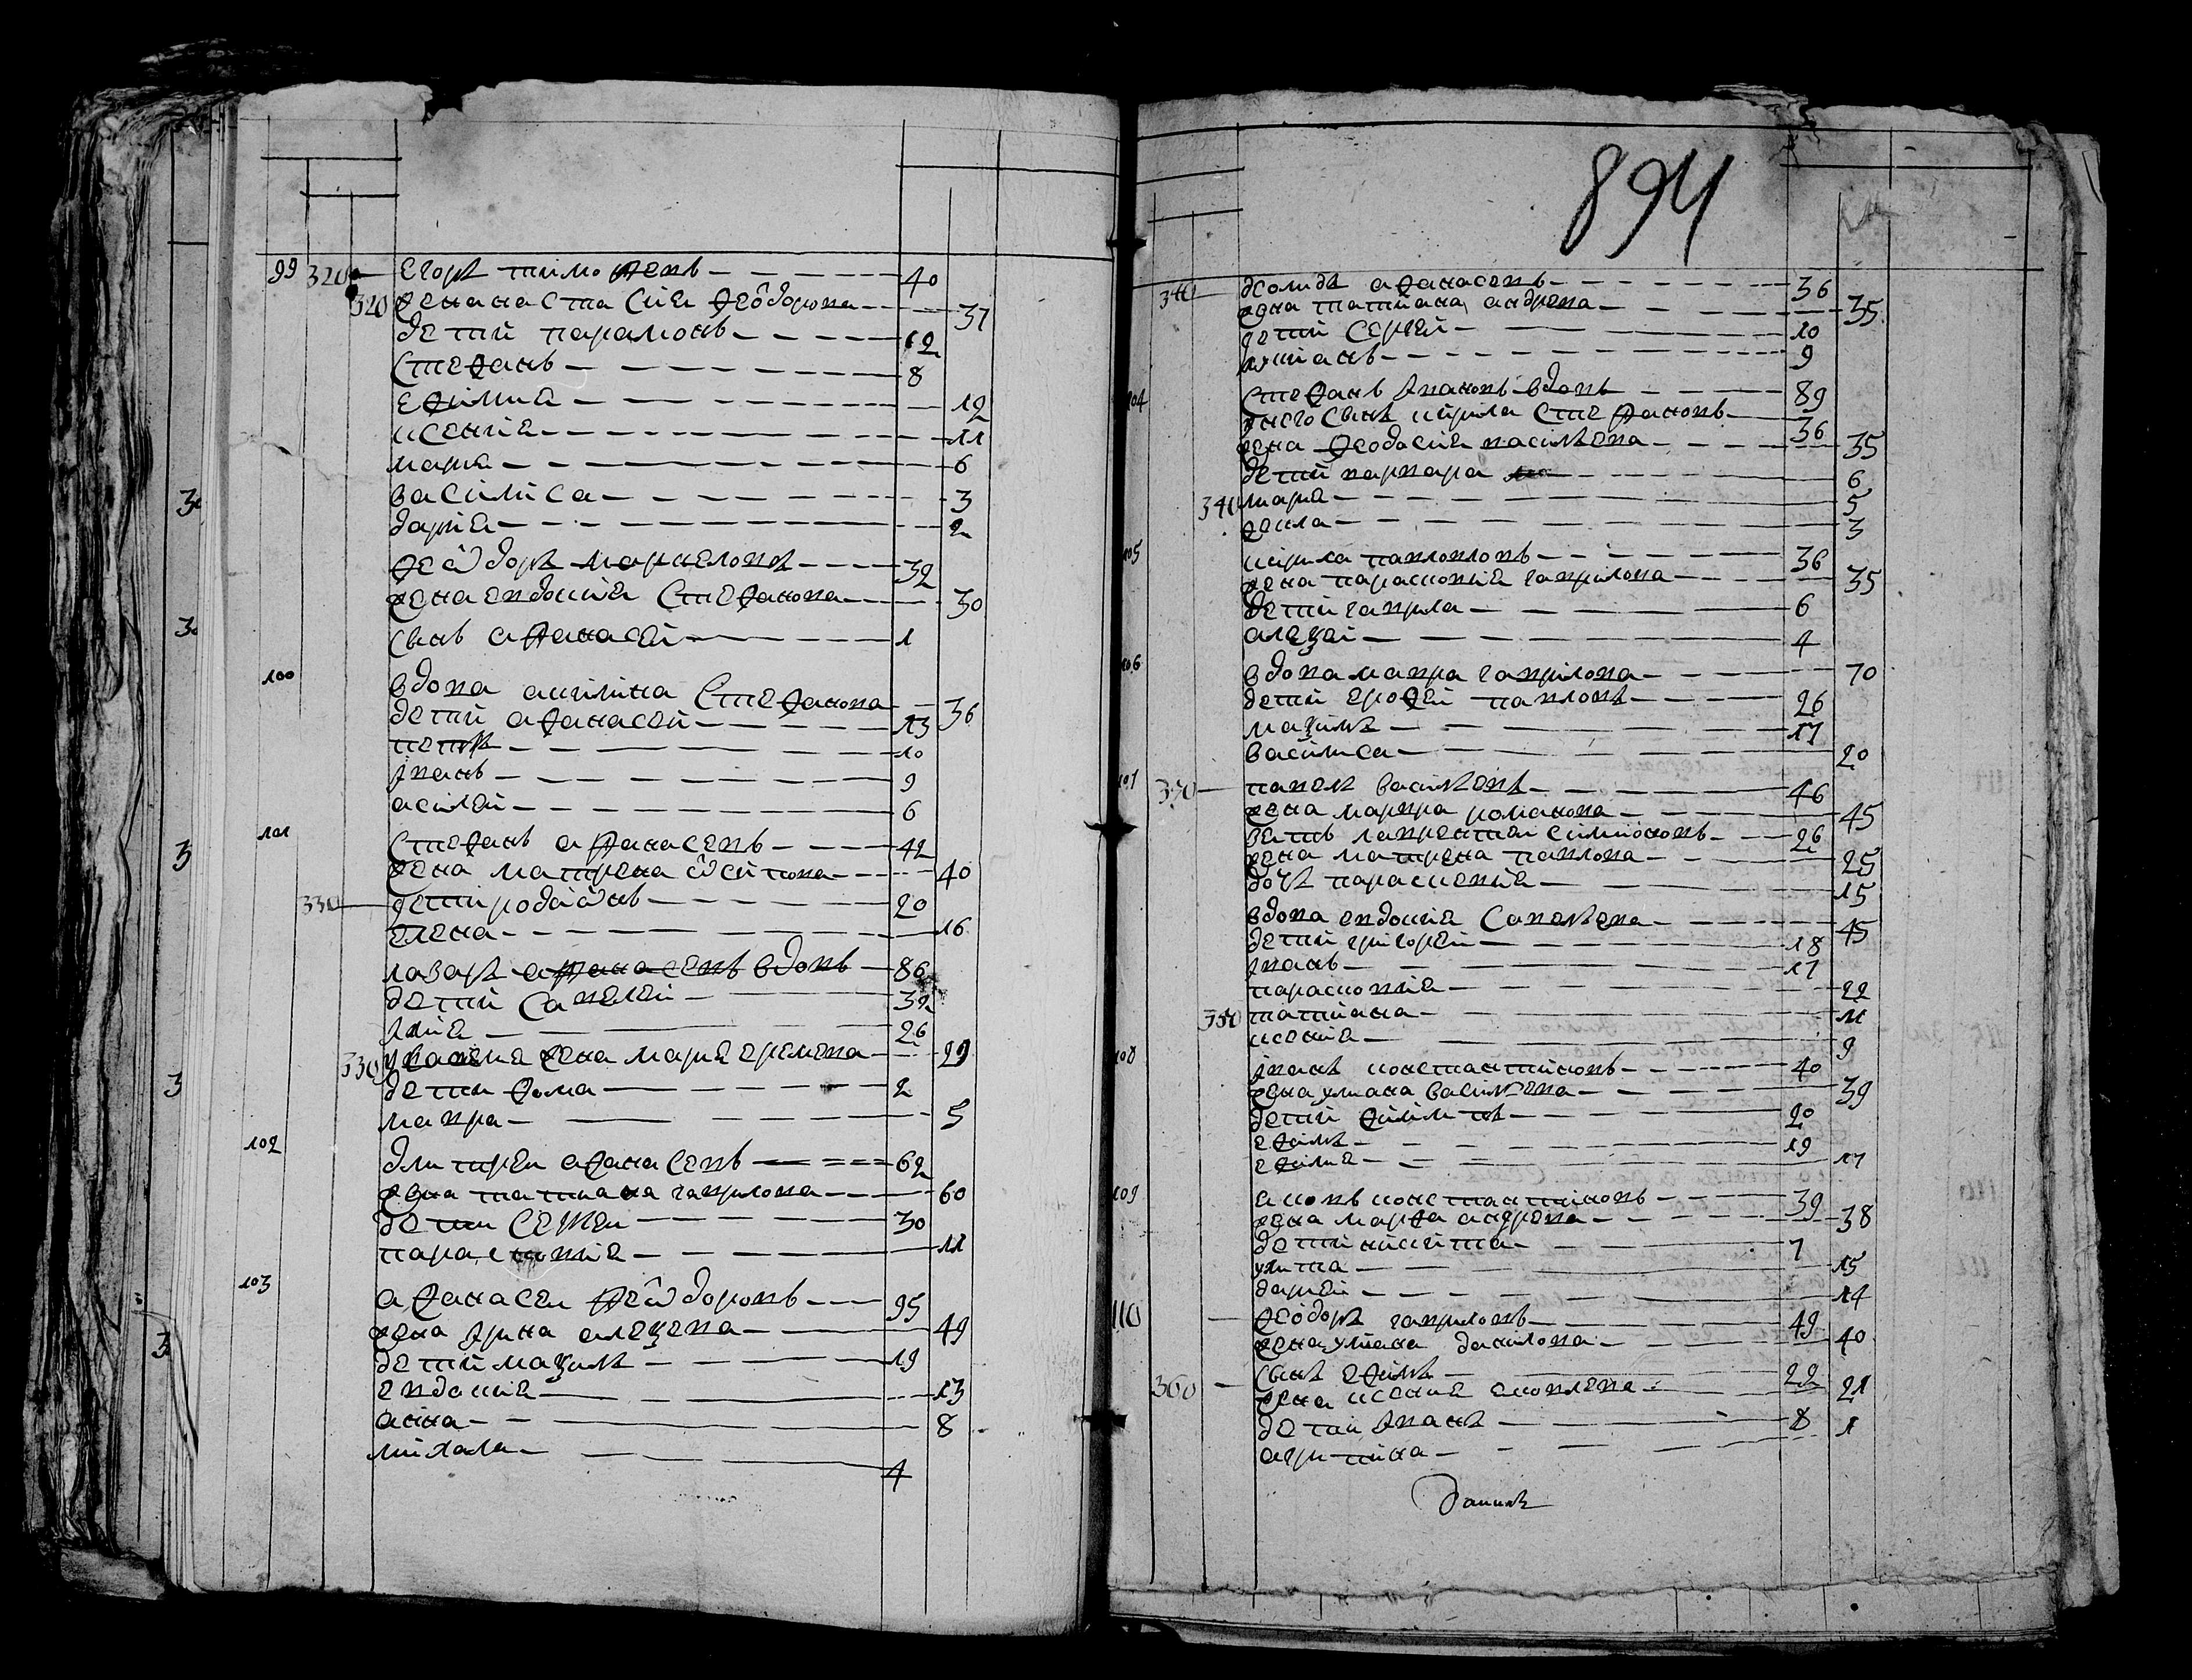 99 320 егоръ тимофеевъ 40
320 жена настасия феодорова 37
дети парамонъ 12
стефанъ 8
ефимиа 12
ксениа 11
мариа 6
василиса 3
дариа 2
феодоръ маркеловъ 32
жена евдокиа стефанова 30
сынъ афанасей 1
100 вдова акилина стефанова 36
дети афанасей 13
петръ 10
иванъ 9
асилей 6
101 стефанъ афанасевъ 42
жена матрена осипова 40
330 дети родионъ 20
елена 16
лазаръ афанасевъ вдовъ 86
дети савелей 32
илиа 26
330 у савелиа жена мариа еремева 29
дети фома 2
мавра 5
102 дмитреи афанасевъ 62
жена татиана гаврилова 60
дети сергеи 30
парасковиа 11
103 афанасеи феодоровъ 95
жена ирина алеѯева 49
дети маѯимъ 19
евдокиа 13
анна 8
михаила 4
894
340 демидъ афанасевъ 36
жена татиана андреева 35
дети сергеи 10
лукианъ 9
104 стефанъ ивановъ вдовъ 89
у него сынъ кирила стефановъ 36
жена феодосиа василева 35
дети варвара 6
340 мариа 5
фекла 3
105 кирила павловъ 36
жена парасковиа гаврилова 35
дети гаврила 6
алеѯеи 4
106 вдова мавра гаврилова 70
дети ерофеи павловъ 26
маѯимъ 17
василиса 20
107 350 павелъ василевъ 46
жена марфа романова 45
зять лаврентеи симионовъ 26
жена матрена павлова 25
дочъ парасковиа 15
вдова евдокиа савелева 45
дети григореи 18
иванъ 17
парасковиа 22
350 татиана 11
ксениа 9
108 иванъ константиновъ 40
жена улиана василева 39
дети филипъ 20
ефимъ 19
ефимиа 17
109 иаковъ константиновъ 39
жена марфа андреева 38
дети никита 7
улита 15
дариа 14
110 феодоръ гавриловъ 49
жена улиана данилова 40
360 сынъ ефимъ 22
жена ксениа иаковлева 21
дети иванъ 8 1
агрипина